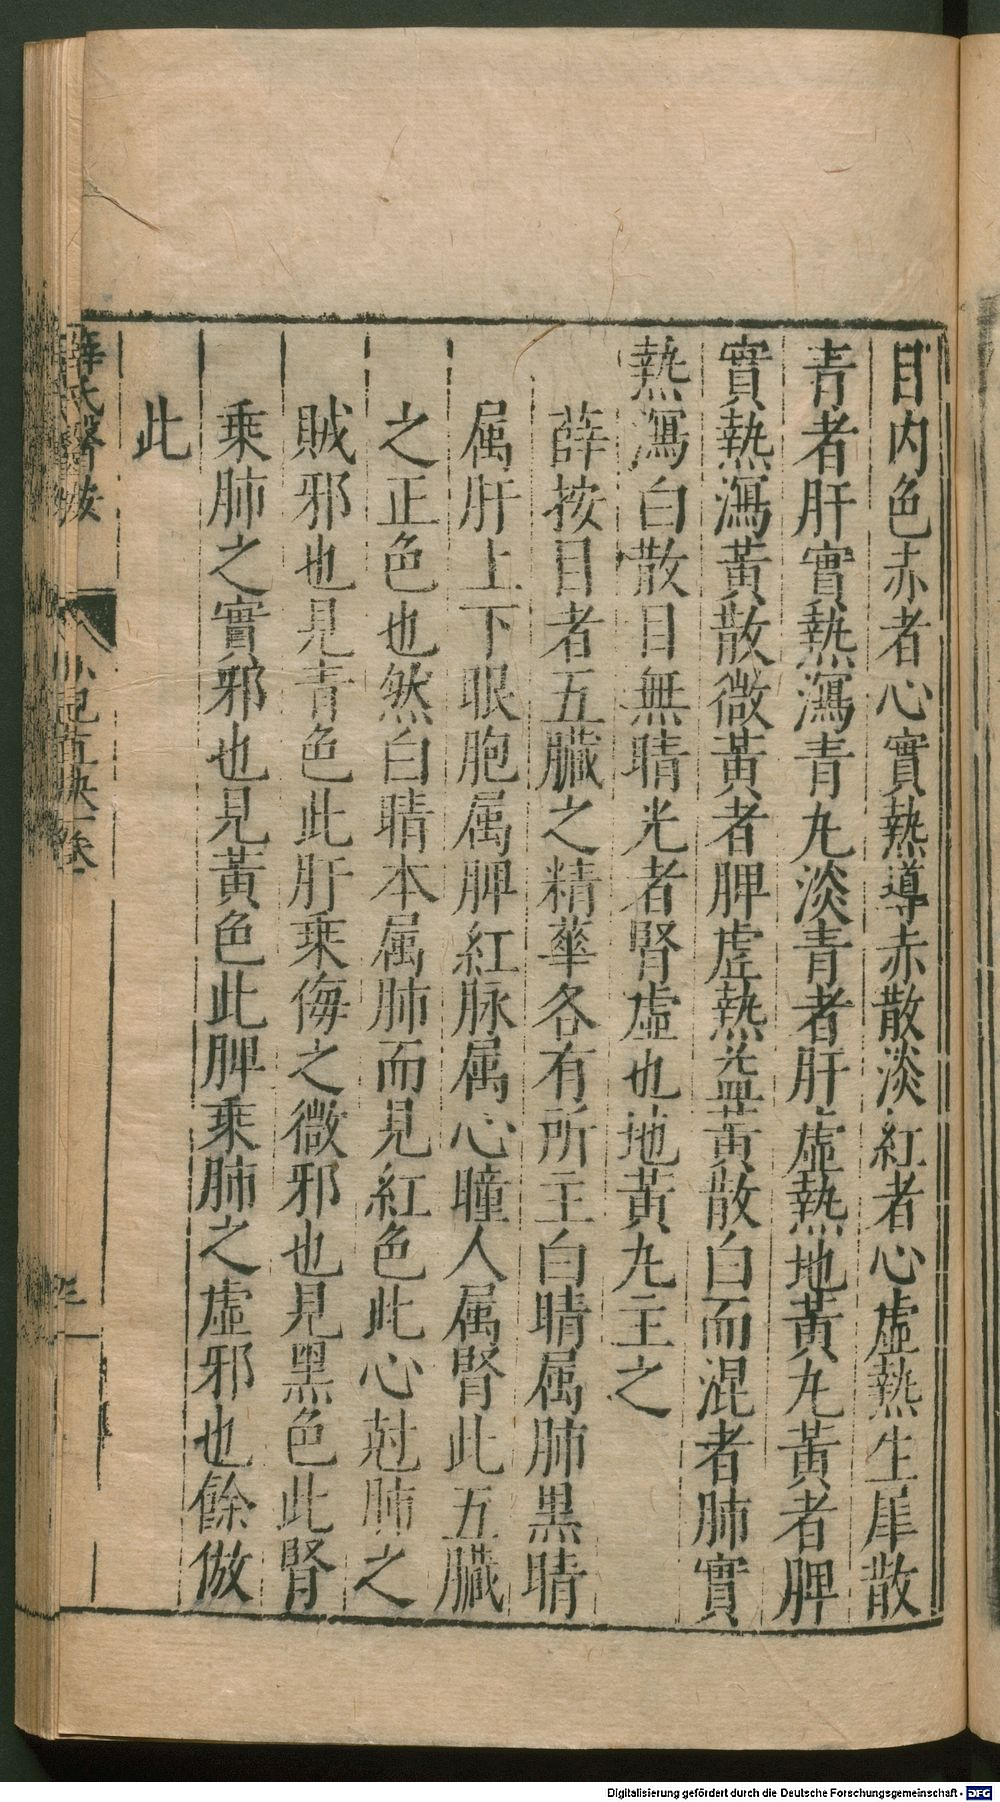 目內色赤者心實熱導赤散淡紅者心虛熱生犀散
青者肝實熱瀉青丸淡青者肝虛熱地黃丸黃者脾
實熱瀉黃散微黃者脾虛熱益黃散白而混者肺實
熱瀉白散目無睛光者腎虛也地黃丸主之
薛按目者五臟之精華各有所主白睛属肺黒睛
属肝上下眼胞属脾紅脉属心瞳人属腎此五臟
之正色也然白睛本属肺而見紅色此心尅肺之
賊邪也見青色此肝乗侮之微邪也見黑色此腎
乗肺之實邪也見黃色此脾乗肺之虛邪也餘倣
此
薛氏醫按
小兒直訣一卷
Digitalisierung gefördert durch die Deutsche Forschungsgemeinschaft - DFG